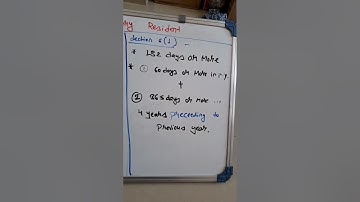 Resident
Section 6(1)
* 182 days or More
* ① 60 days or More in P.Y.
+
② 365 days or More ...
4 years preceeding to
Previous year.